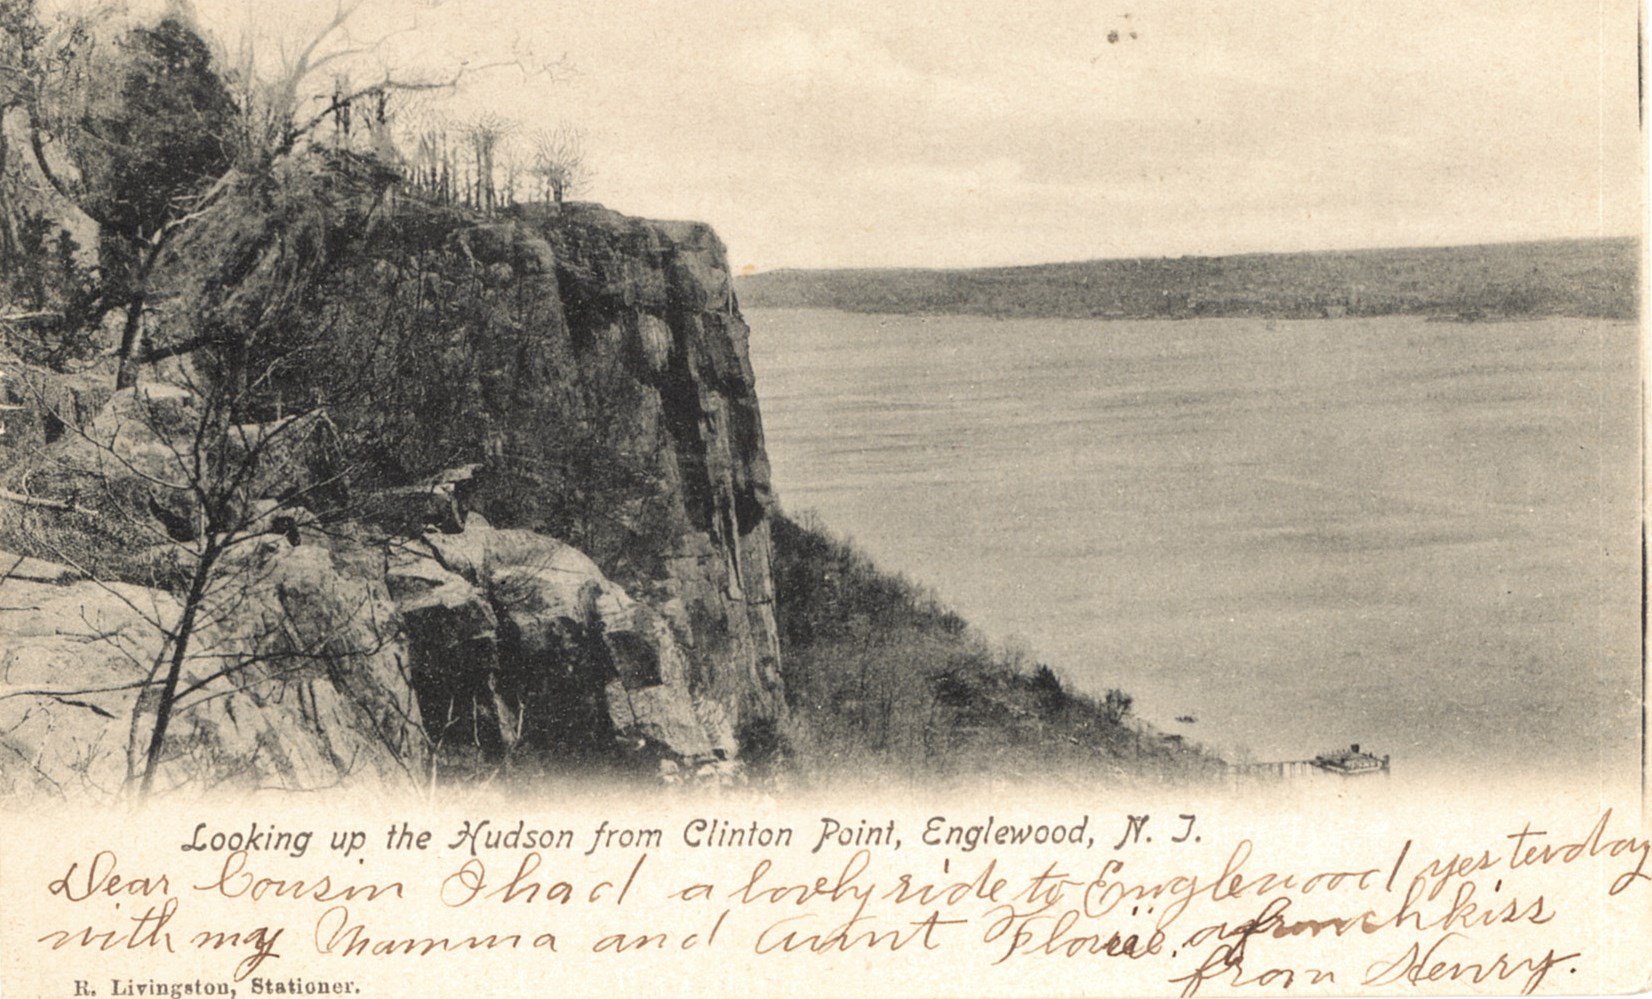 Looking up the Hudson from Clinton Point, Englewood, N. J.
Dear Cousin I had a lovely ride to Englewood yesterday
with my Mamma and Aunt Florie. a french kiss
from Henry.
R. Livingston, Stationer.